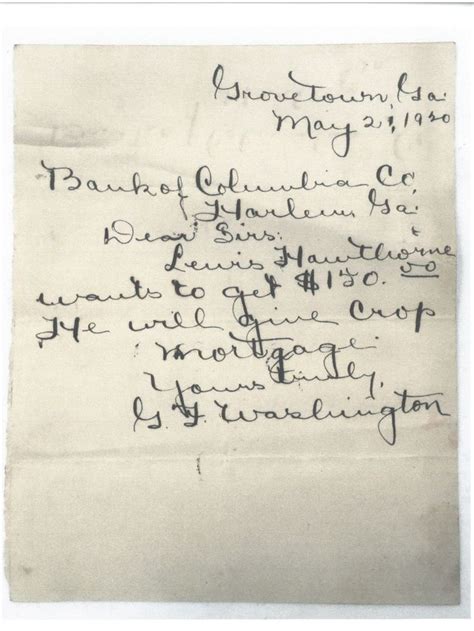 Grovetown, Ga.
May 21, 1920
Bank of Columbia Co,
Harlem Ga.
Dear Sirs:
Lewis Hawthorne
wants to get $150.00
He will give Crop
Mortgage.
Yours truly,
G. F. Washington